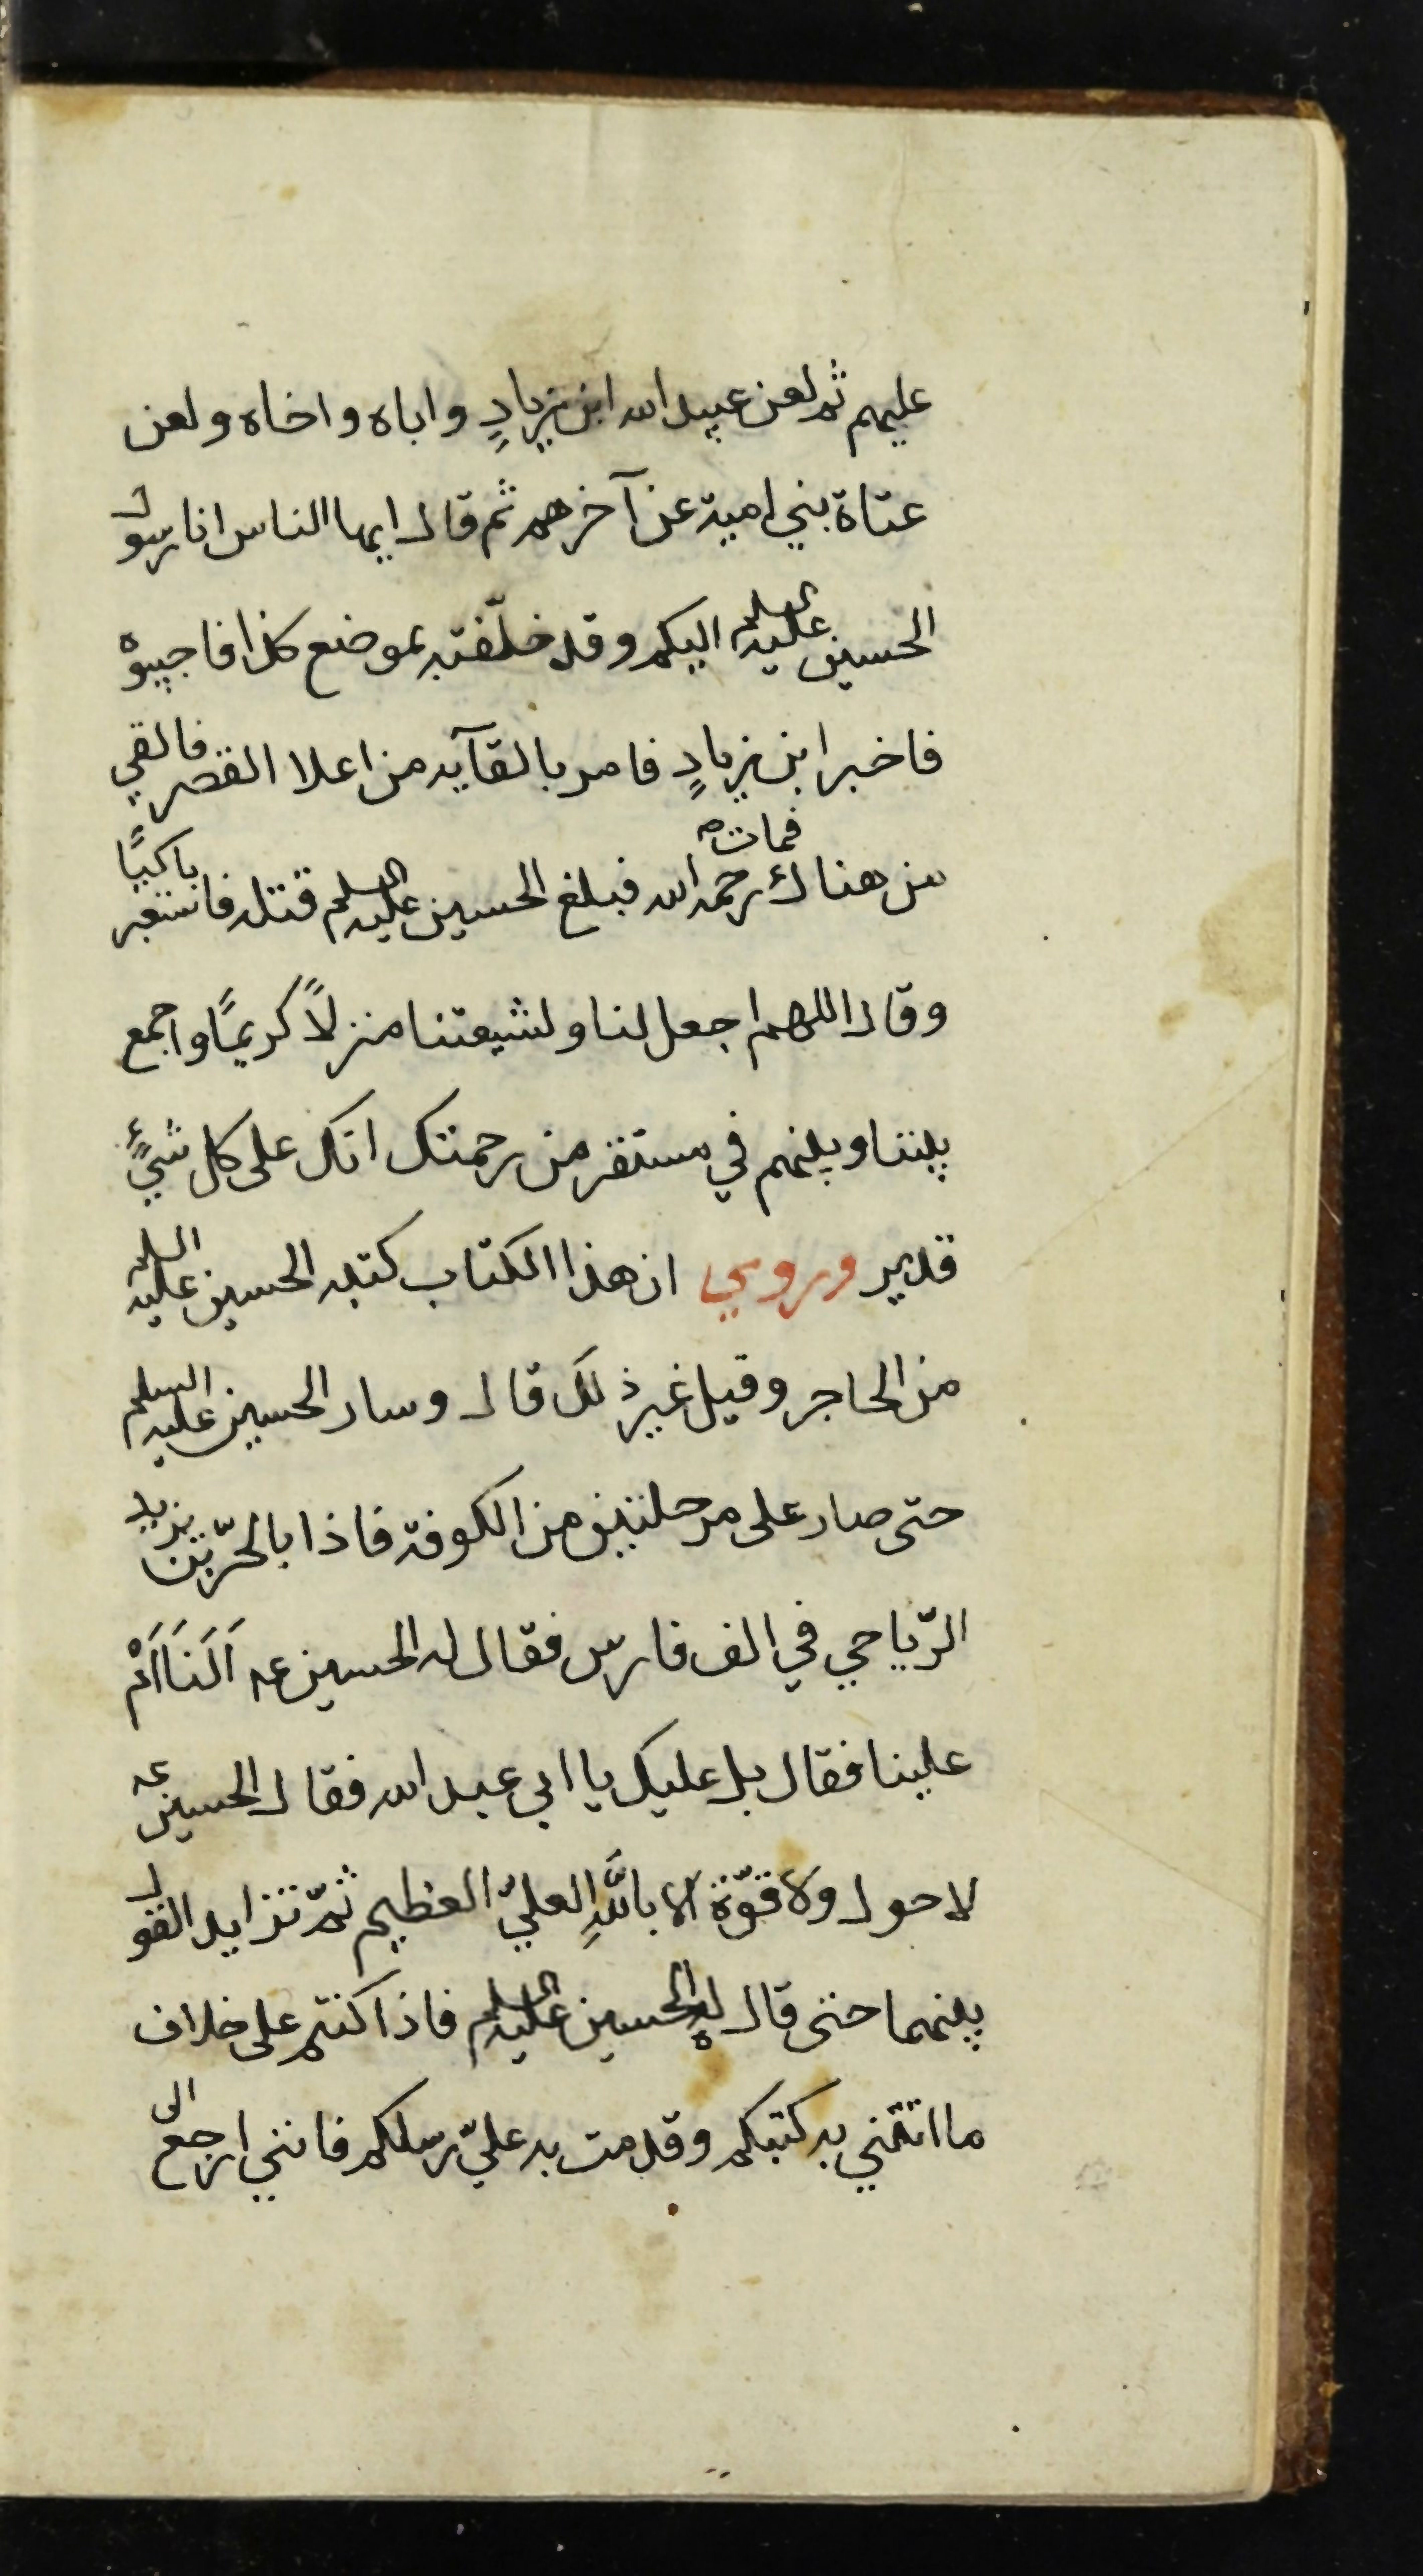 عليهم ثم لعن عبيد الله ابن زيادٍ واباه واخاه ولعن
عتاة بني امية عن آخرهم ثم قال ايها الناس انا رسول
الحسين عليه السلم اليكم وقد خلّفته بموضع كذا فاجيبوه
فاخبر ابن زيادٍ فامر بالقآيه من اعلا القصر فالقي
من هناك فمات رحمه الله فبلغ الحسين عليه السلم قتله فاستعبر باكيًا
وقال اللهم اجعل لنا ولشيعتنا منزلاً كريمًا واجمع
بيننا وبينهم في مستقر من رحمتك انك على كل شيءٍ
قدير وروي ان هذا الكتاب كتبه الحسين عليه السلم
من الحاجر وقيل غير ذلك قال وسار الحسين عليه السلم
حتى صار على مرحلتين من الكوفة فاذا بالحرّ بن يزيد
الرّياحي في الف فارس فقال له الحسين عه اَلَنَا اَمْ
علينا فقال بل عليك يا ابى عبد الله فقال الحسين عه
لا حول ولا قوّة الا باللّهِ العليّ العظيم ثمّ تزايد القول
بينهما حتى قال له الحسين عليه السلم فاذا كنتم على خلاف
ما اتتني به كتبكم وقدمت به عليّ رسلكم فانني ارجع الى